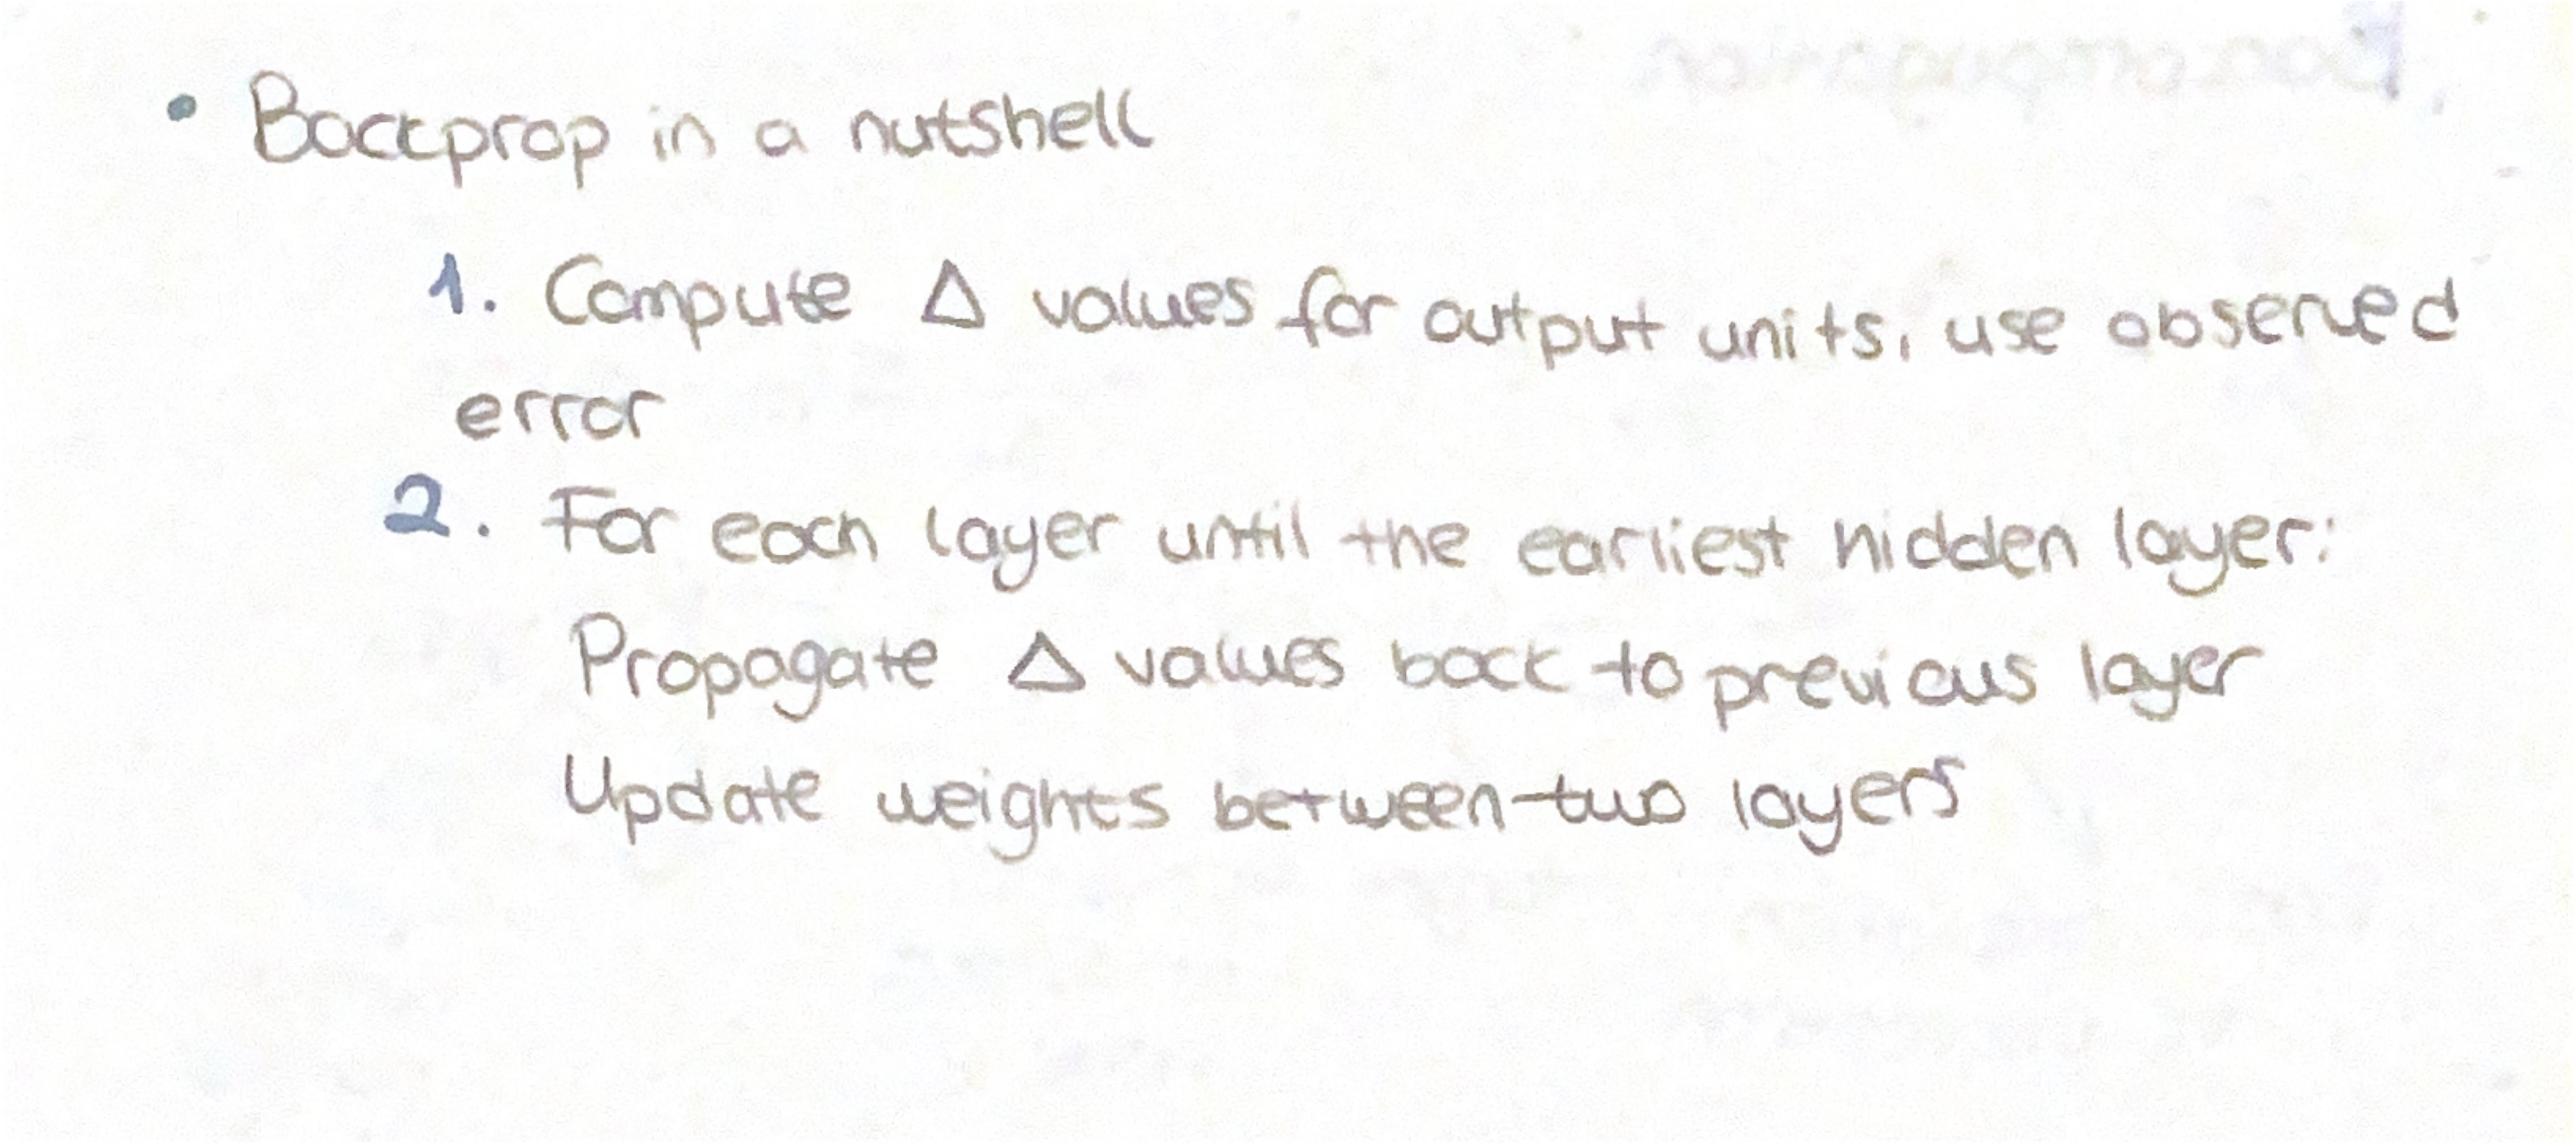 • Backprop in a nutshell
1. Compute Δ values for output units, use observed
error
2. For each layer until the earliest hidden layer:
Propagate Δ values back to previous layer
Update weights between two layers